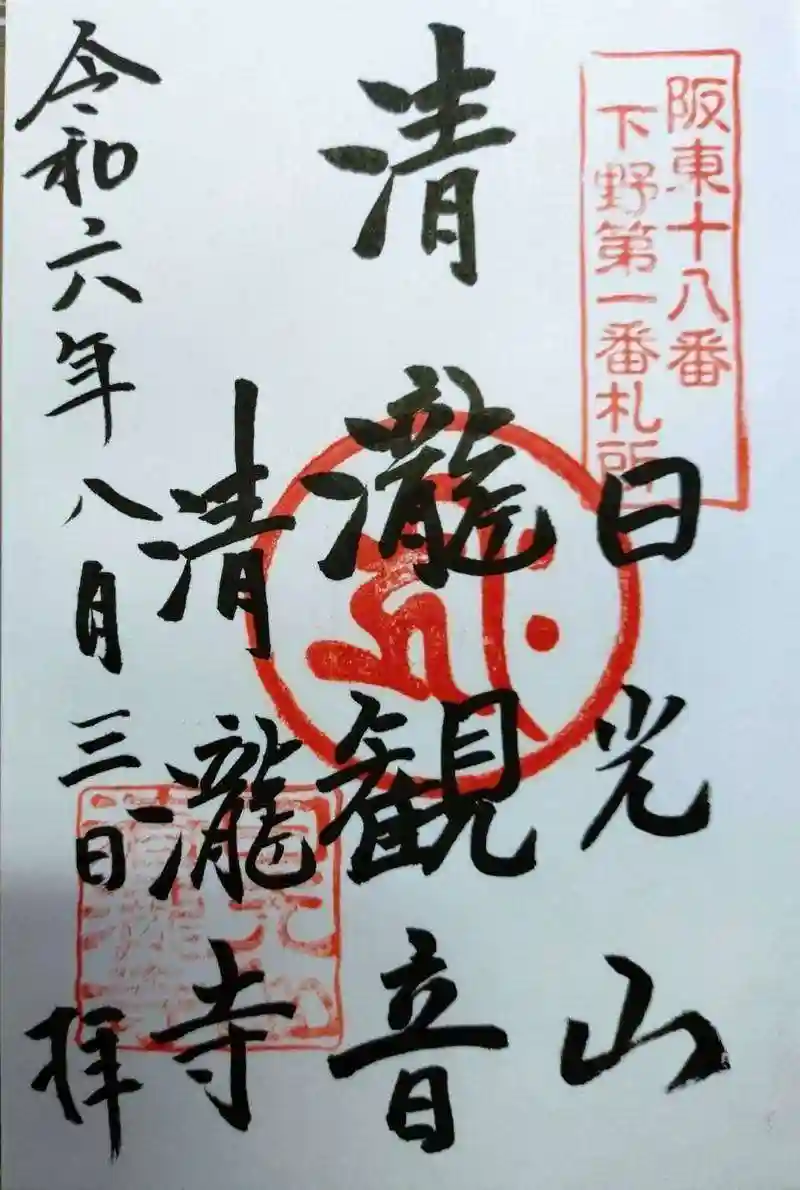 阪東十八番
下野第一番札所
日光山
清瀧観音
清瀧寺
令和六年八月三日
拝